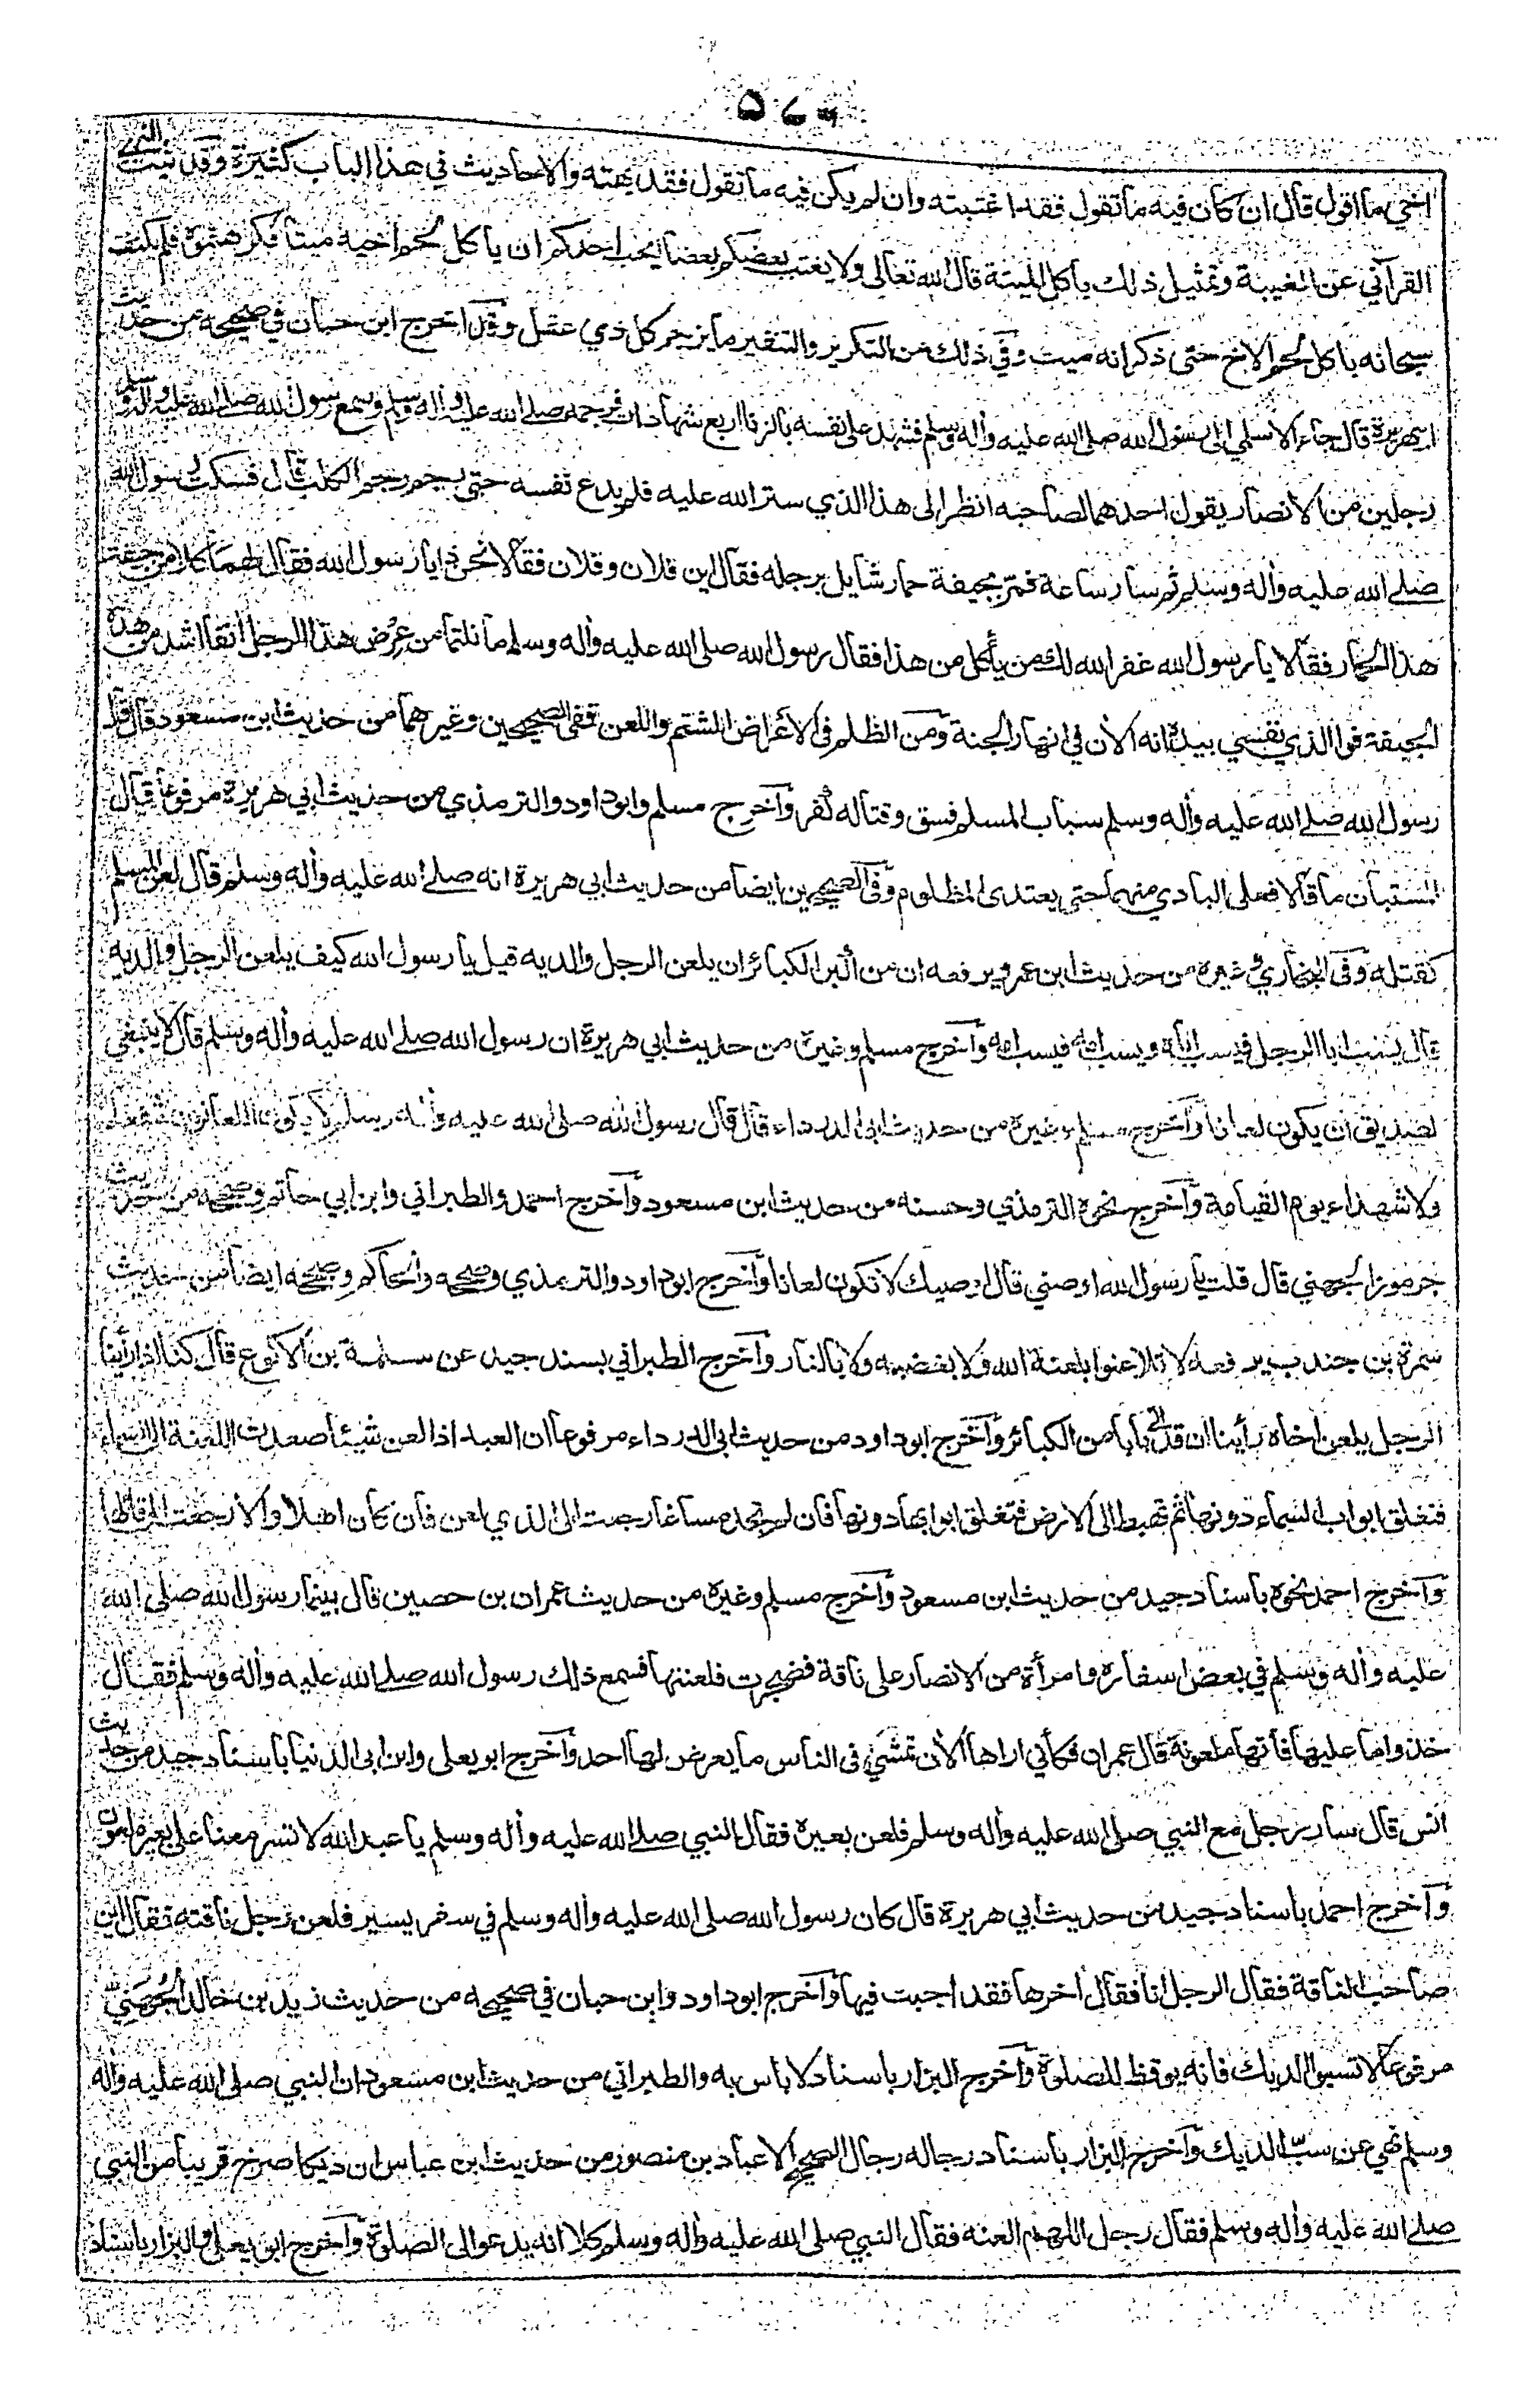 اخي ما اقول قال ان كان فيه ما تقول فقد اغتبته وان لم يكن فيه ما تقول فقد بهته والاحاديث في هذا الباب كثيرة وقد ثبت النهي
القرآني عن الغيبة وتمثيل ذلك بأكل الميتة قال الله تعالى ولا يغتب بعضكم بعضا ايحب احدكم ان يأكل لحم اخيه ميتا فكرهتموه فلم يكتف
سبحانه بأكل لحم الاخ حتى ذكر انه ميت وفي ذلك من التكريه والتنفير ما يزجر كل ذي عقل وقد اخرج ابن حبان في صحيحه من حديث
ابي هريرة قال جاء الاسلمي الى رسول الله صلى الله عليه وأله وسلم فشهد على نفسه بالزنا اربع شهادات فرجمه صلى الله عليه وأله وسلم وسمع رسول الله صلى الله عليه وأله وسلم
رجلين من الانصار يقول احدهما لصاحبه انظر الى هذا الذي ستر الله عليه فلم يدع نفسه حتى رجم رجم الكلب قال فسكت رسول الله
صلى الله عليه وأله وسلم ثم سار ساعة فمر بجيفة حمار شايل برجله فقال اين فلان وفلان فقالا نحن ذا يا رسول الله فقال لهما كلا من جيفة
هذا الحمار فقالا يا رسول الله غفر الله لك من يأكل من هذا فقال رسول الله صلى الله عليه وأله وسلم ما نلتما من عرض هذا الرجل أنفا اشد من هذه
الجيفة فوالذي نفسي بيده انه الأن في انهار الجنة ومن الظلم في الأعراض الشتم واللعن ففي الصحيحين وغيرهما من حديث ابن مسعود قال قال
رسول الله صلى الله عليه وأله وسلم سباب المسلم فسق وقتاله كفر وأخرج مسلم وابو داود والترمذي من حديث ابي هريرة مرفوعا قال
المستبان ما قالا فعلى البادي منهما حتى يعتدى المظلوم وفي الصحيحين ايضا من حديث ابي هريرة انه صلى الله عليه وأله وسلم قال لعن المسلم
كقتله وفي البخاري وغيره من حديث ابن عمرو يرفعه ان من أكبر الكبائر ان يلعن الرجل والديه قيل يا رسول الله كيف يلعن الرجل والديه
قال يسب ابا الرجل فيسب اباه ويسب امه فيسب امه وأخرج مسلم وغيره من حديث ابي هريرة ان رسول الله صلى الله عليه وأله وسلم قال لا ينبغي
لصديق ان يكون لعانا وأخرج مسلم وغيره من حديث ابي الدرداء قال قال رسول الله صلى الله عليه وأله وسلم لا يكون اللعانون شفعاء
ولا شهداء يوم القيامة وأخرج نحوه الترمذي وحسنه من حديث ابن مسعود وأخرج احمد والطبراني وابن ابي حاتم وصححه من حديث
جرموز الجهني قال قلت يا رسول الله اوصني قال اوصيك لا تكون لعانا وأخرج ابو داود والترمذي وصححه والحاكم وصححه ايضا من حديث
سمرة بن جندب يرفعه لا تلاعنوا بلعنة الله ولا بغضبه ولا بالنار وأخرج الطبراني بسند جيد عن سلمة بن الاكوع قال كنا اذا رأينا
الرجل يلعن اخاه رأينا ان قد اتى بابا من الكبائر وأخرج ابو داود من حديث ابي الدرداء مرفوعا ان العبد اذا لعن شيئا صعدت اللعنة الى السماء
فتغلق ابواب السماء دونها ثم تهبط الى الارض فتغلق ابوابها دونها فان لم تجد مساغا رجعت الى الذي لعن فان كان اهلا والا رجعت الى قائلها
وأخرج احمد نحوه باسناد جيد من حديث ابن مسعود وأخرج مسلم وغيره من حديث عمران بن حصين قال بينما رسول الله صلى الله
عليه وأله وسلم في بعض اسفاره وامرأة من الانصار على ناقة فضجرت فلعنتها فسمع ذلك رسول الله صلى الله عليه وأله وسلم فقال
خذوا ما عليها فأنها ملعونة قال عمران فكأني اراها الأن تمشي في الناس ما يعرض لها احد وأخرج ابو يعلى وابن ابي الدنيا باسناد جيد من حديث
انس قال سار رجل مع النبي صلى الله عليه وأله وسلم فلعن بعيره فقال النبي صلى الله عليه وأله وسلم يا عبد الله لا تسر معنا على بعير ملعون
وأخرج احمد باسناد جيد من حديث ابي هريرة قال كان رسول الله صلى الله عليه وأله وسلم في سفر يسير فلعن رجل ناقته فقال اين
صاحب الناقة فقال الرجل انا فقال أخرها فقد اجبت فيها وأخرج ابو داود وابن حبان في صحيحه من حديث زيد بن خالد الجهني
مرفوعا لا تسبوا الديك فانه يوقظ للصلوة وأخرج البزار باسناد لا باس به والطبراني من حديث ابن مسعود ان النبي صلى الله عليه وأله
وسلم نهي عن سب الديك وأخرج البزار باسناد رجاله رجال الصحيح الا عباد بن منصور من حديث ابن عباس ان ديكا صرخ قريبا من النبي
صلى الله عليه وأله وسلم فقال رجل اللهم العنه فقال النبي صلى الله عليه وأله وسلم كلا انه يدعو الى الصلوة وأخرج ابو يعلى والبزار باسناد